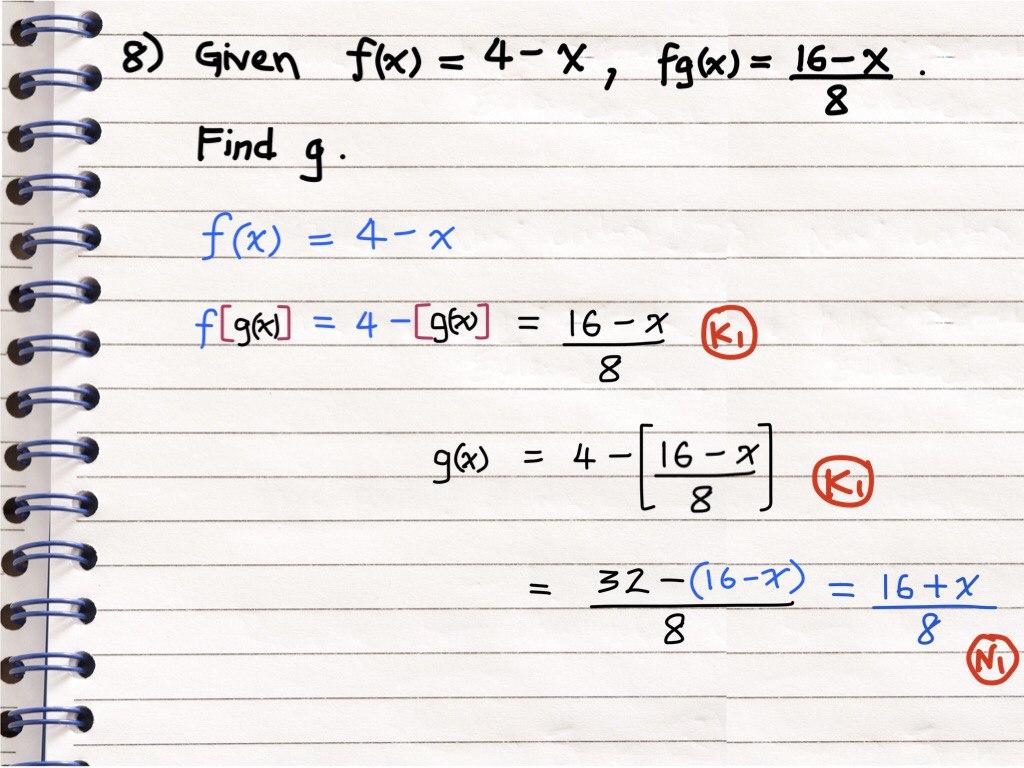 8) Given f(x) = 4 - x, fg(x) = \frac{16 - x}{8}.
Find g.
f(x) = 4 - x
f[g(x)] = 4 - [g(x)] = \frac{16 - x}{8} K1
g(x) = 4 - [\frac{16 - x}{8}] K1
= \frac{32 - (16 - x)}{8} = \frac{16 + x}{8} N1